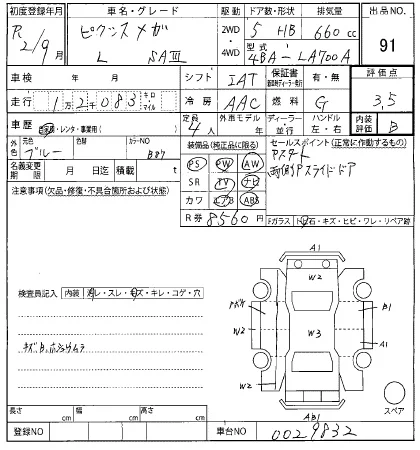 初度登録年月 車名・グレード 駆動 ドア数・形状 排気量 出品NO.
R 2/9月 ピクシスメガ 2WD 5 HB 660cc 91
L SAⅢ 4WD 型式 4BA-LA700A
車検 年 月 シフト IAT 保証書 有・無 評価点
走行 12083 キロ マイル 冷房 AAC 燃料 G 3.5
車歴 自家用・レンタ・事業用( ) 定員 4人 外車モデル 年 ディーラー・並行 ハンドル 左・右 内装評価 B
外色 元色 ブルー 色替 カラーNO B87
装備品(純正品に限る) セールスポイント(正常に作動するもの)
名義変更期限 月 日迄 積載 t
PS PW AW
SR TV ナビ
カワ エアB ABS
両側Pスライドドア
注意事項(欠品・修復・不具合箇所および状態)
R券 8560円
Fガラス トビ石・キズ・ヒビ・ワレ・リペア跡
検査員記入 内装 汚レ・スレ・キズ・キレ・コゲ・穴
A1
W2
B1
W2 W3
A1
W2
AB1
スペア
長さ cm 幅 cm 高さ cm
登録NO 車台NO 0029832